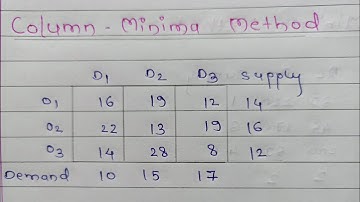 Column - Minima Method
D1 D2 D3 Supply
O1 16 19 12 14
O2 22 13 19 16
O3 14 28 8 12
Demand 10 15 17